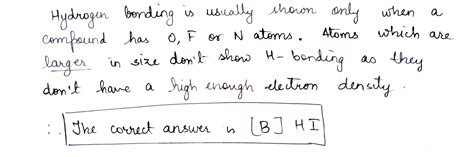 Hydrogen bonding is usually shown only when a
compound has O, F or N atoms. Atoms which are
larger in size don't show H-bonding as they
don't have a high enough electron density.
∴ The correct answer is [B] HI